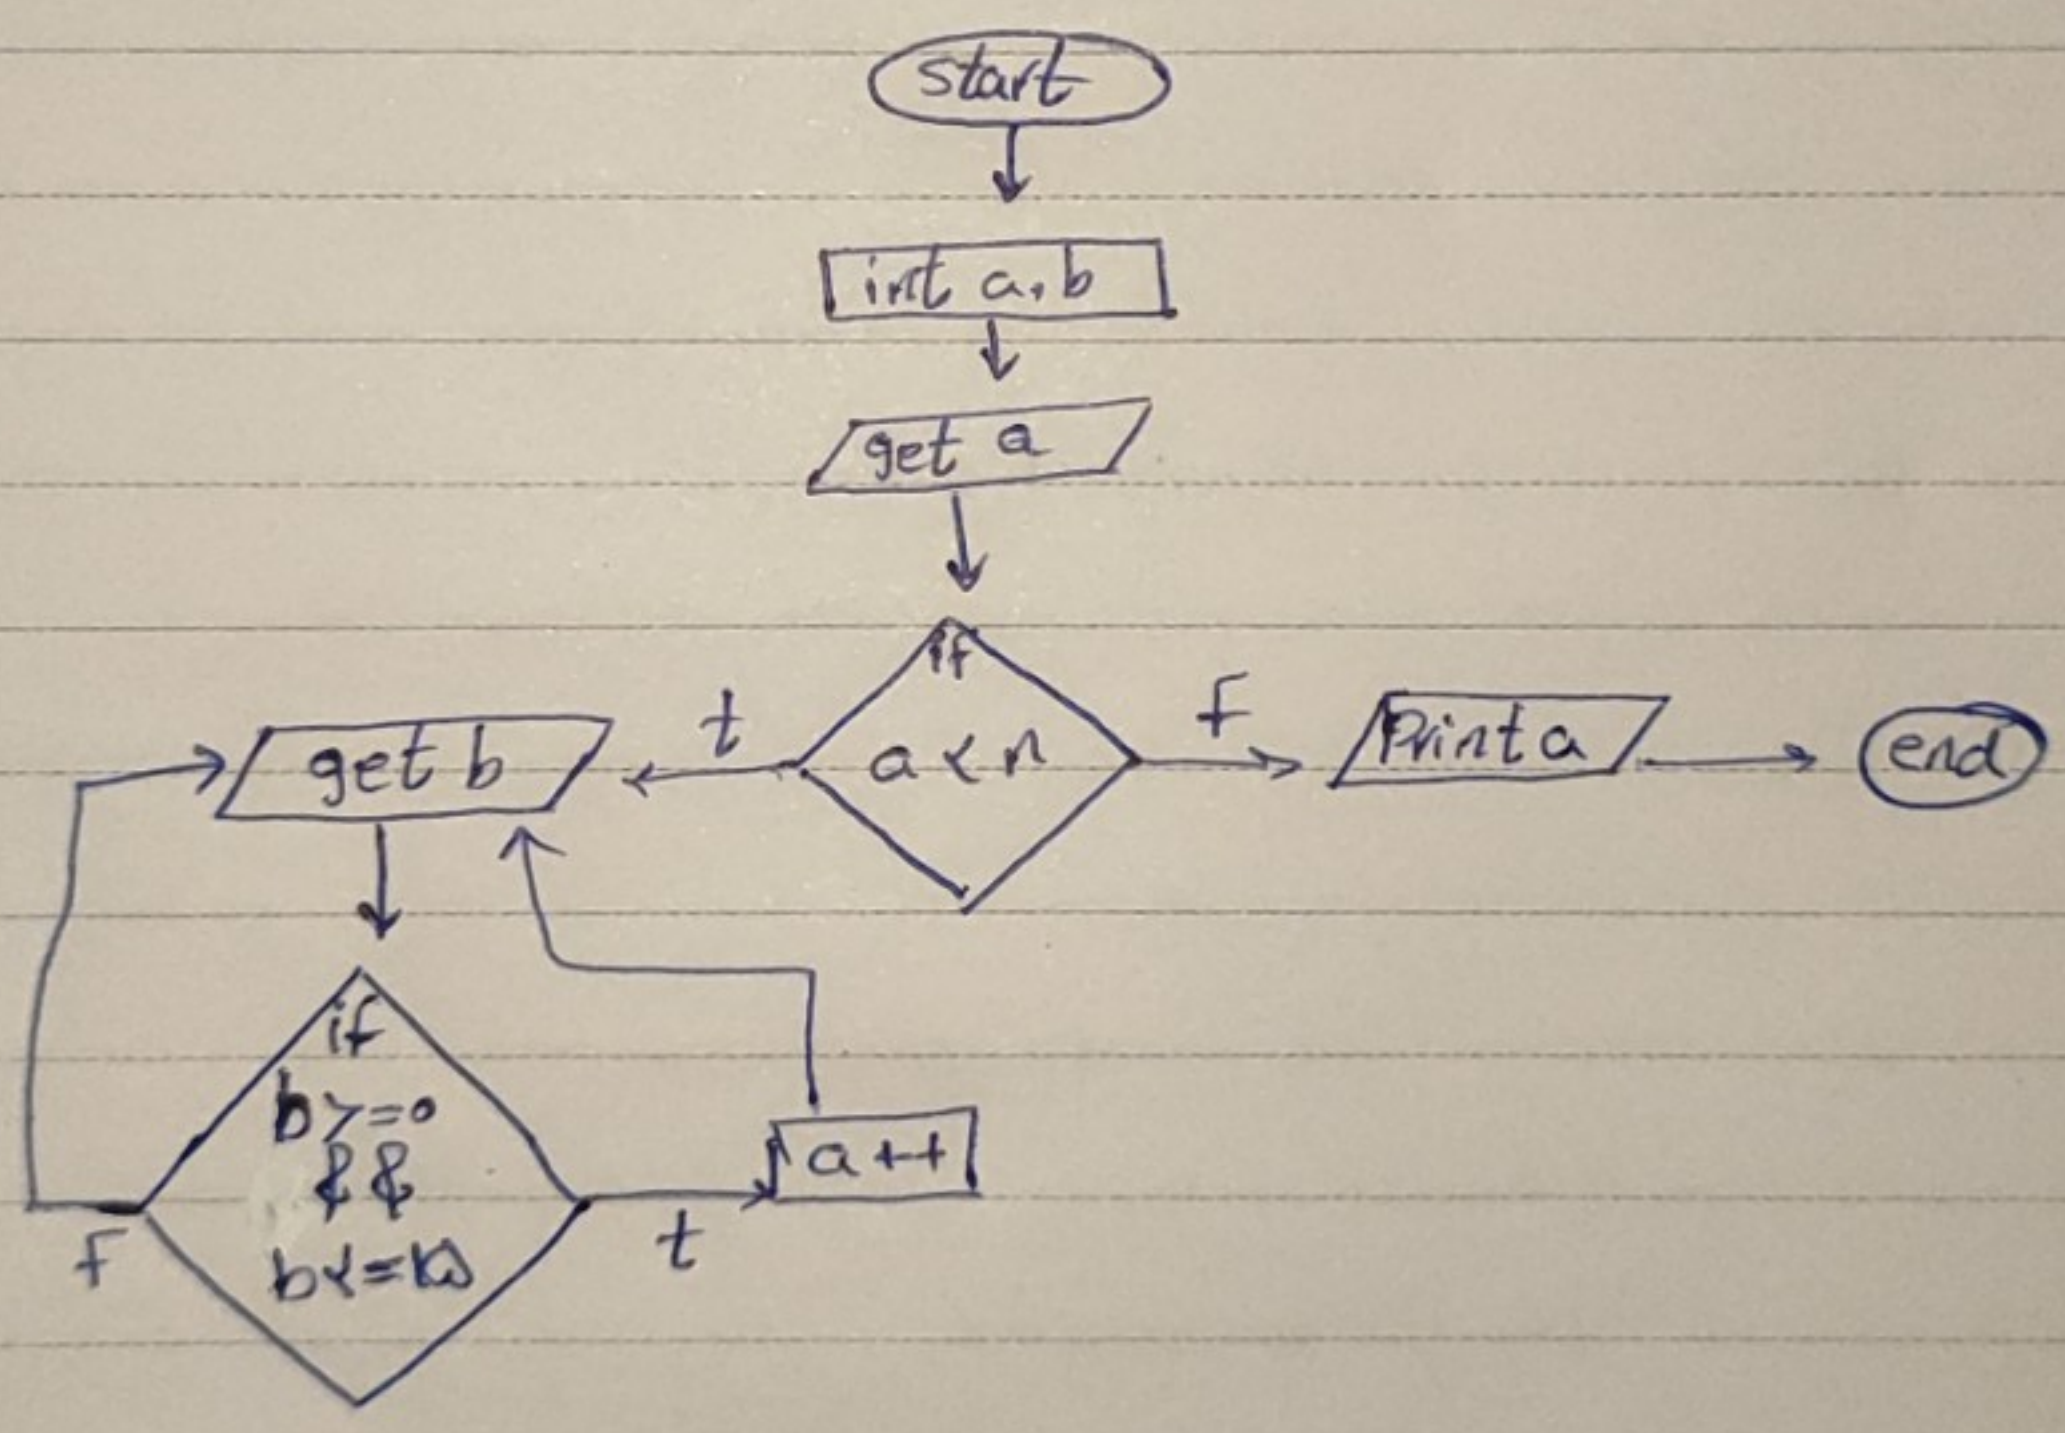 start
int a, b
get a
if
a < n
t
F
get b
Print a
end
if
b >= 0
&&
b <=
F
t
a ++